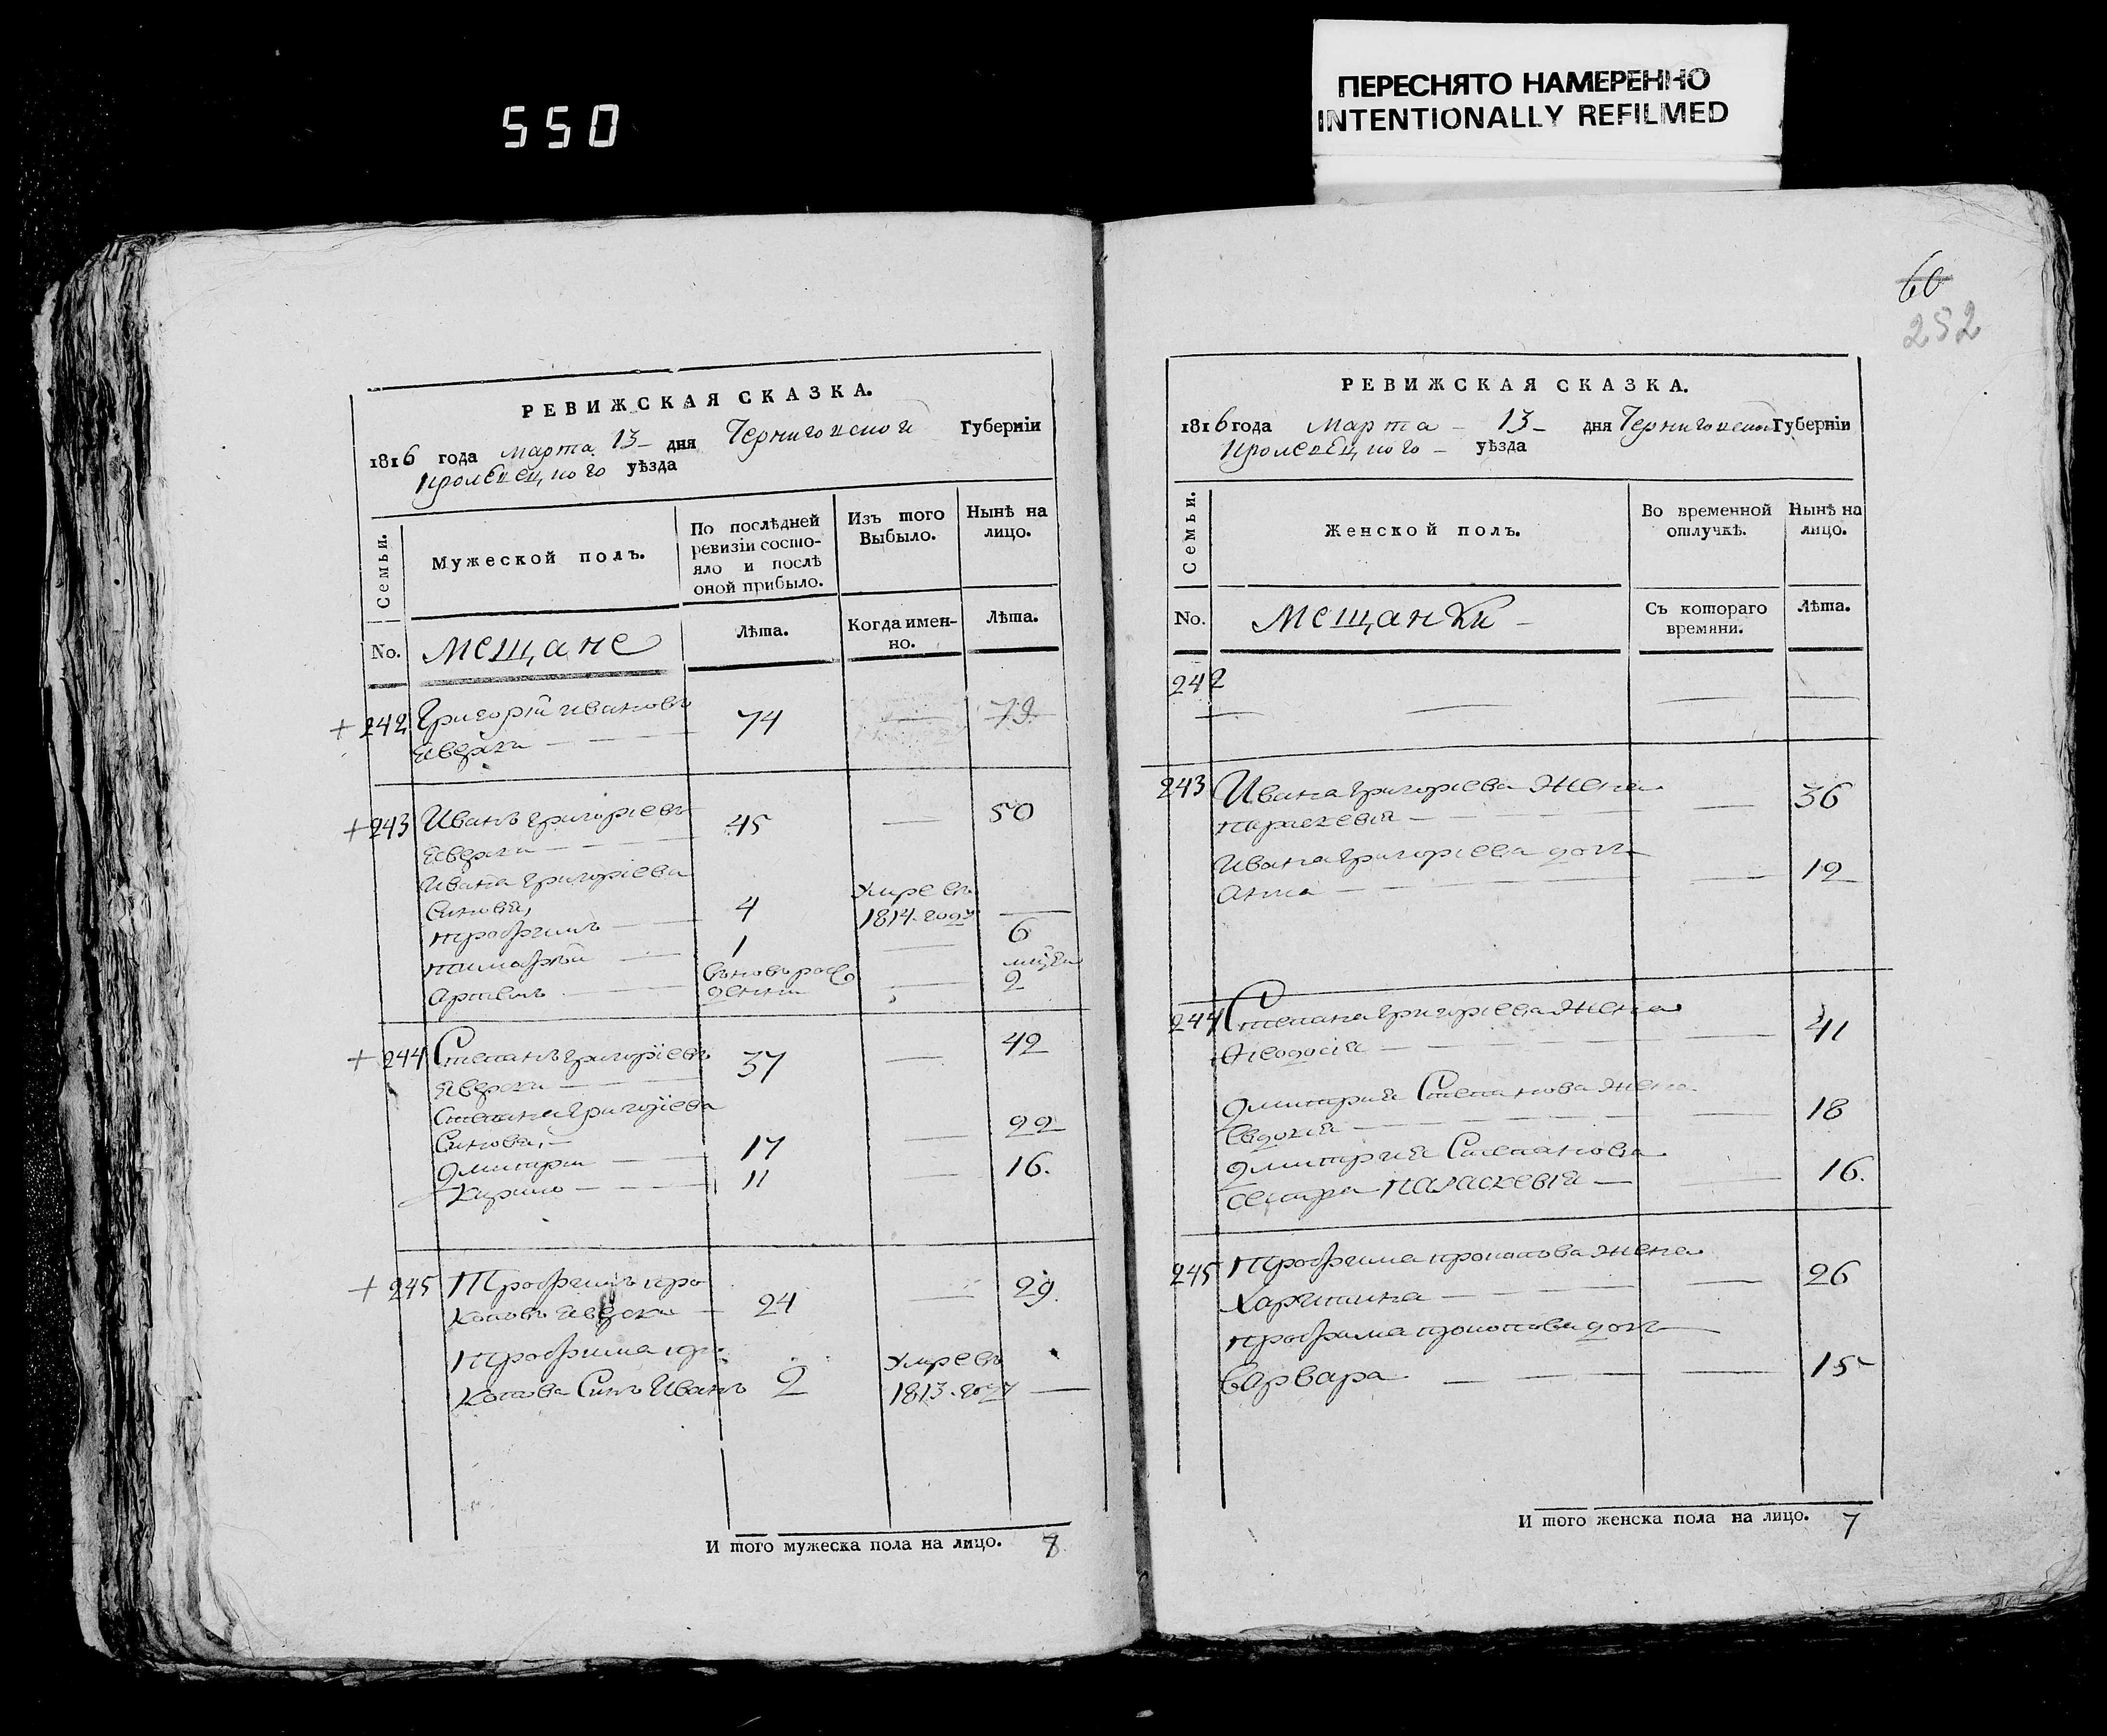 ПЕРЕСНЯТО НАМЕРЕННО
INTENTIONALLY REFILMED
550
60
252
РЕВИЖСКАЯ СКАЗКА.
1816 года марта 13 дня Черниговской Губерніи
Кролевецкого уѣзда
Семьи.
Мужеской полъ.
По послѣдней ревизіи состо-
яло и послѣ
оной прибыло.
Изъ того
Выбыло.
Нынѣ на
лицо.
No.
мещане
Лѣта.
Когда имен-
но.
Лѣта.
+ 242 Григорій Ивановъ 74
+ 243 Иванъ Григорієвъ 45 50
Ивана Григорієва
Синовя, Умре въ
Трофимъ 4 1814 году
Тимофѣй 1 6
Артемъ 2
+ 244 Степанъ Григорієвъ 37 42
Степана Григорієва
Синовя,
Дмитри 17 22
Кирило 11 16.
+ 245 Трофимъ Про
коповъ 24 29.
Трофима Про Умре въ
копова Синъ Иванъ 2 1813 году
И того мужеска пола на лицо. 8
РЕВИЖСКАЯ СКАЗКА.
1816 года Марта 13 дня Черниговской Губерніи
Кролевецкого уѣзда
Семьи.
Женской полъ.
Во временной
отлучкѣ.
Нынѣ на
лицо.
No.
Мещанки
Съ котораго
времяни.
Лѣта.
242
243 Ивана Григорієва Жена
Параскевія 36
Ивана Григорієва доч
Анна 12
244 Степана Григорієва Жена
Ѳеодосія 41
Дмитрия Степанова Жена
Евдокія 18
Дмитрия Степанова
сестра Параскевія 16.
245 Трофима Прокопова Жена
Харитина 26
Трофима Прокопова доч
Варвара 15
И того женска пола на лицо. 7